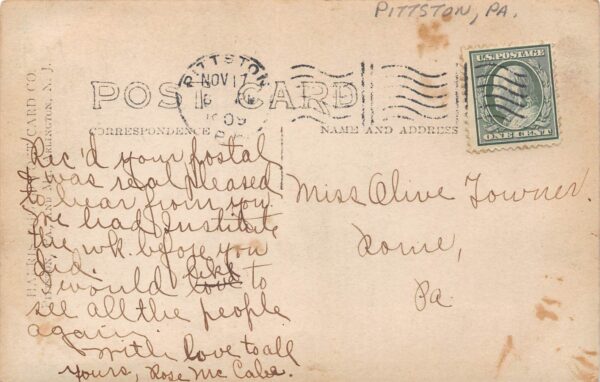 PITTSTON, PA.
PITTSTON
NOV 17
1909
PA.
U.S. POSTAGE
ONE CENT
POST CARD
CORRESPONDENCE
NAME AND ADDRESS
CARD CO.
ARLINGTON, N. J.
Rec'd your postal
was real pleased
to hear from you
We had Institute
the wk. before you
did.
I would like to
see all the people
again.
With love to all
yours, Rose Mc Cabe.
Miss Olive Towner.
Rome,
Pa.